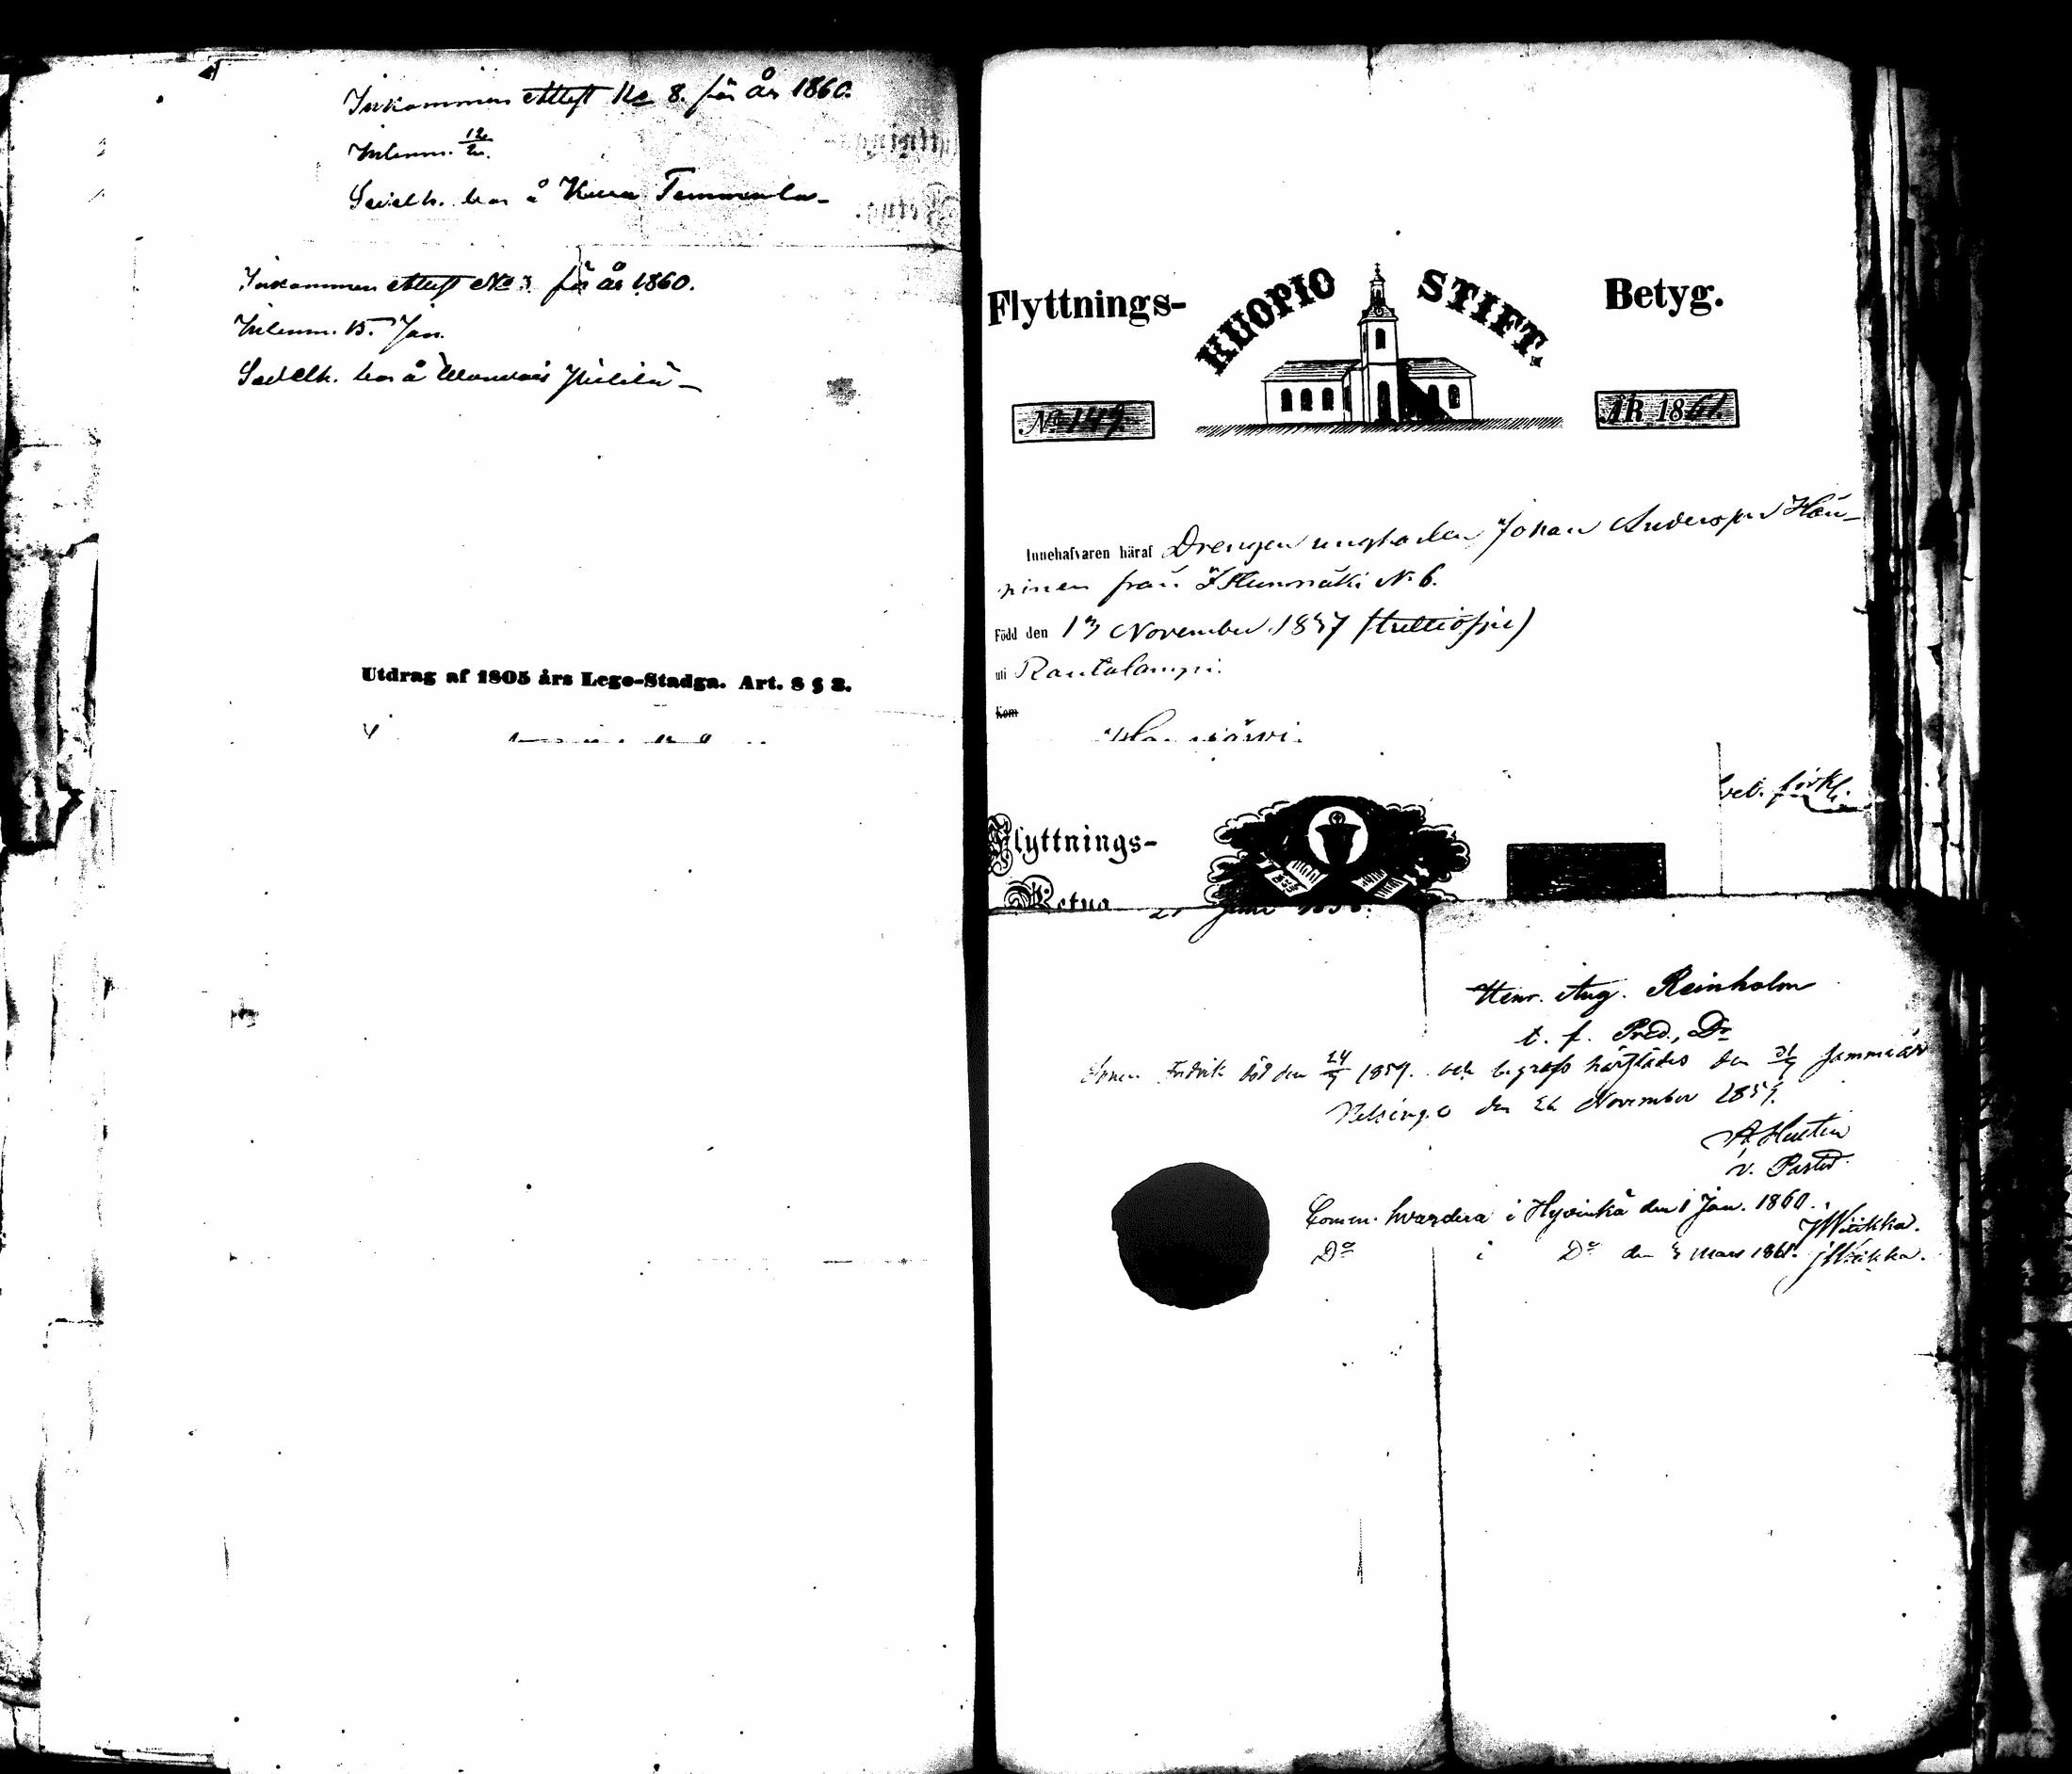 Inkommen attest No 8. för år 1860.
Inlemn. 12/2.
Sedelh. bor å Kura Temmola
Inkommen attest No 3 för år 1860.
Inlemn. 15. Jan.
Sedelh. bor å
Utdrag af 1805 års Lego-Stadga. Art. 8 § 2.
Flyttnings- KUOPIO STIFT. Betyg.
No 149. ÅR 1861.
Innehafvaren häraf Drengen ungkarlen Johan Andersson Hän-
ninen från No 6.
Född den 13 November 1837
uti Rautalampi.
Kom
Flyttnings-
Betyg
Henr. Aug. Reinholm
t. f. Pred., Dr
Sonen Fredrik död den 24/7 1859. och begrafs härstädes den 31/7 samma år
Helsinge den 26 November 1859.
v. Pastor.
Comm. hvardera i Hyvinkä den 1 Jan. 1860. JWiikka.
Do i Do den 3 Mars 1861. JWiikka.